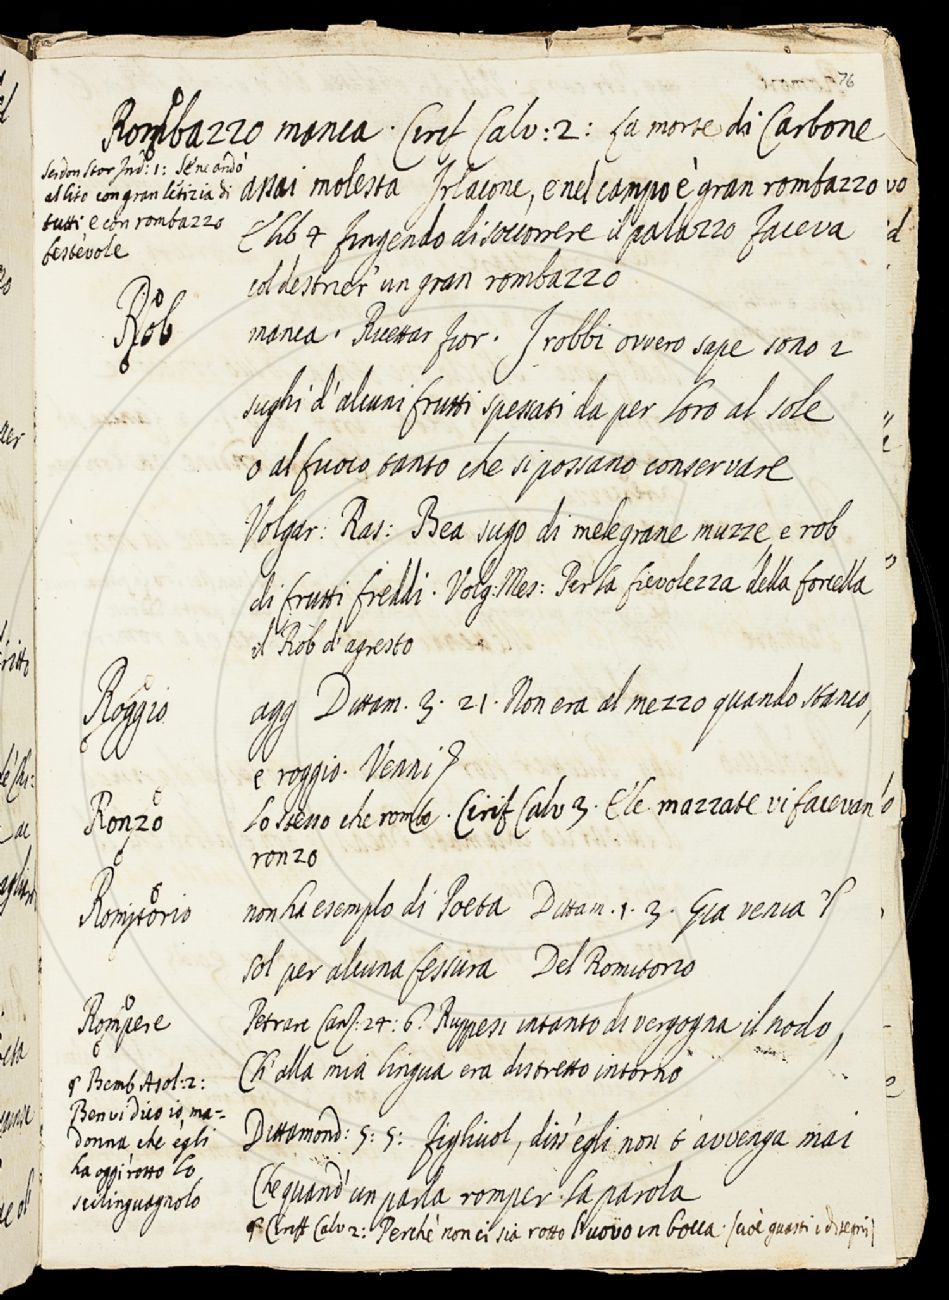 76
Rombazzo manca. Cirif Calv: 2: La morte di Carbone
Serdon Stor Ind: 1: Se ne andò
al lito con gran letizia di
tutti e con rombazzo
festevole
assai molesta Irlacone, e nel campo è gran rombazzo
E lib 4 fingendo di soccorrere il palazzo faceva
col destrier un gran rombazzo
Rob manca. Ricettar fior. I robbi ovvero sape sono i
sughi d'alcuni frutti spessati da per loro al sole
o al fuoco tanto che si possano conservare
Volgar: Ras: Bea sugo di melegrane muzze, e rob
di frutti freddi. Volg: Mes: Per la fievolezza della forcella
il Rob d'agresto
Roggio agg Dittam. 3. 21. Non era al mezzo quando stanco,
e roggio. Venni
Ronzo Lo stesso che rombo. Cirif Calv 3. E le mazzate vi facevan lo
ronzo
Romitorio non ha esemplo di Poeta Dittam. 1. 3. Gia venia
sol per alcuna fessura Del Romitorio
Rompere Petrarc Canz: 24: 6: Ruppesi intanto di vergogna il nodo,
Ch'alla mia lingua era distretto intorno
Bemb Asol: 2:
Ben vi dico io ma=
donna che egli
ha oggi rotto lo
scilinguagnolo
Dittamond: 5: 5: figliuol, diss'egli non t'avvenga mai
Che quand'un parla romper la parola
Ciriff Calv 2: Perchè non ci sia rotto l'uovo in bocca. (cioè guasti i disegni)